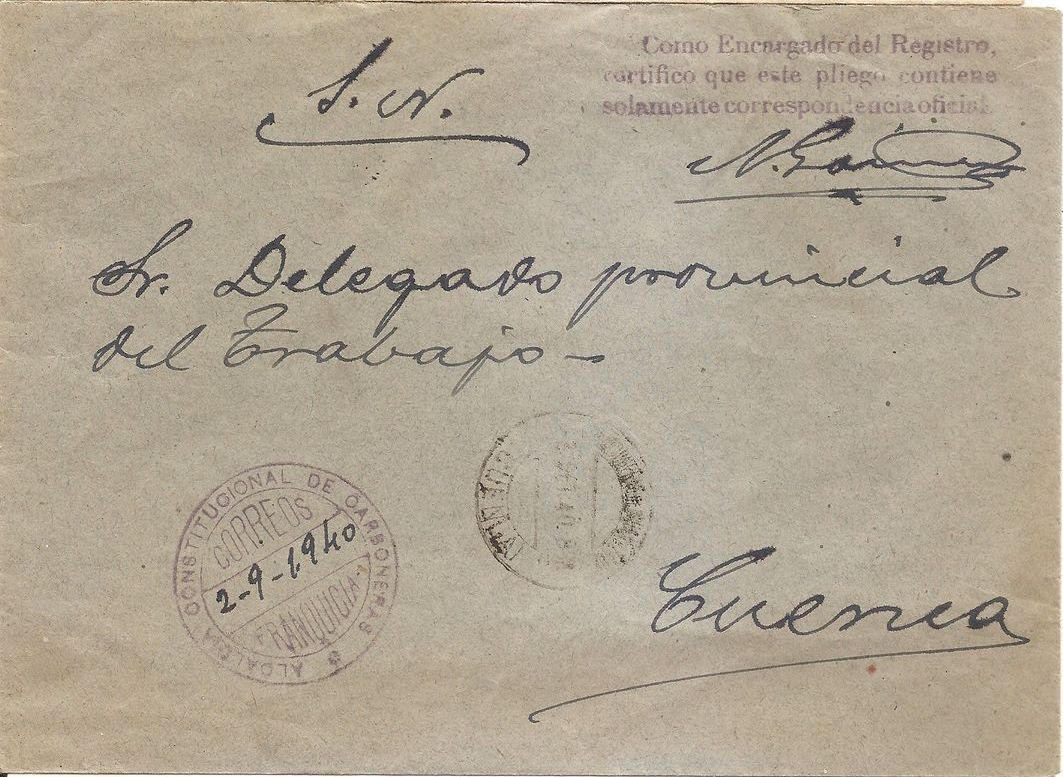 Como Encargado del Registro,
certifico que este pliego contiene
solamente correspondencia oficial.
S. N.
Sr. Delegado provincial
del Trabajo-
ALCALDIA CONSTITUCIONAL DE CARBONERAS
CORREOS
2-9-1.940
FRANQUICIA
CUENCA
Cuenca